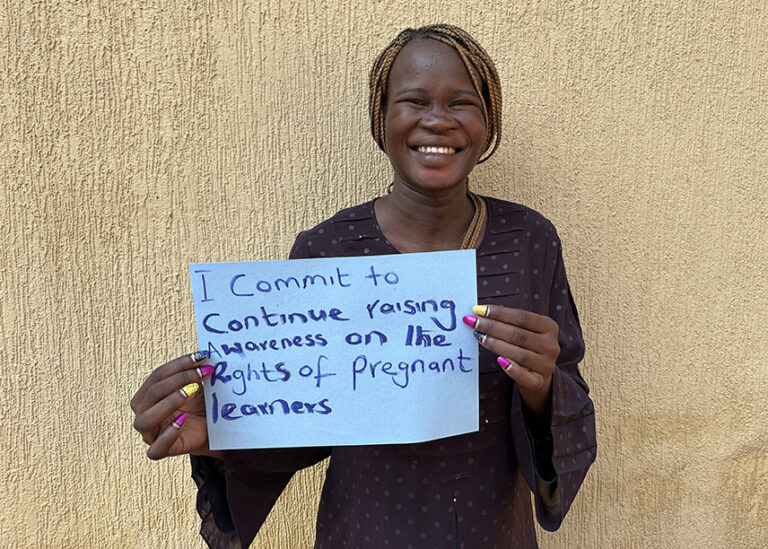 I Commit to
Continue raising
Awareness on the
Rights of Pregnant
learners